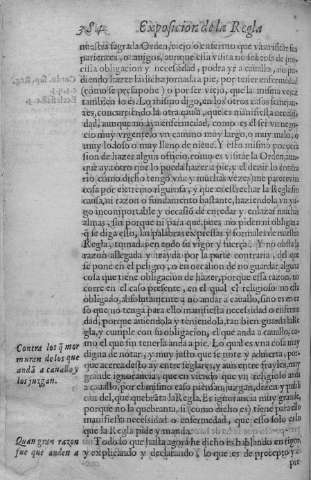 384 Exposicion de la Regla
mãdasse la Orden, viejo o enfermo que va a visitar sus
parientes, o amigos, aunque essa visita no sea cosa de pre-
cissa obligacion y necessidad, podra yr a cauallo, no pu-
diendo hazer la dicha jornada a pie, por tener enfermedad
(como se presupone) o por ser viejo, que la misma vejez
tambien lo es. Lo mismo digo, en los otros casos semejan-
tes, concurriendo la otra qual, que es manifiesta necessi-
dad, aunque no aya enfermedad, como es el ser vn nego-
cio muy vrgente, o vn camino muy largo, o muy malo, o
muy lodoso o muy lleno de nieue. Y esto mismo por
sion de hazer algun oficio, como es visitar la Orden, aun-
que aya otro que lo pueda hazer a pie, y el dezir lo contra-
rio como dicho tengo vna y muchas vezes
cosa por extremo rigurosa, y que es estrechar la Regla sin
causa, ni razon o fundamento bastante, haziendola vn yu-
go incomportable y occasiõ de enredar y enlazar muchas
almas, sin porque ni para que, pues no piden ni obligan
que se diga esto, las palabras expressas y formales de nuestra
Regla, tomadas en todo su vigor y fuerça. Y no obsta la
razon allegada y trayda por la parte contraria, del que
se pone en el peligro, o en occasion de no guardar alguna
cosa que tiene obligacion de hazer, porque essa razon, no
corre en el caso presente, en el qual el religioso no esta
obligado, absolutamente a no andar a cauallo, sino es en ca-
so que no tenga para ello manifiesta necessidad o enferme-
dad; porque auiendola y teniendola, tan bien guarda la Re-
gla, y cumple con su obligacion, el que anda a cauallo, co-
mo el que sin tenerla anda a pie. Lo qual es vna cosa muy
digna de notar, y muy justo que se note y aduierta, por-
que acerca desto ay entre seglares, y aun entre frayles, muy
grande ignorancia, que en viendo que vn religioso anda
a cauallo, por el mismo caso piensan, juzgan, dizen y publi-
can del, que quebrãta la Regla. Es ignorancia muy grande,
porque no la quebranta, si (como dicho es) tiene para ello
manifiesta necessidad o enfermedad, que esso solo es lo
que la Regla pide y manda.
Todo lo que hasta agora he dicho es hablando en rigor,
y explicando y declarando, lo que es de precepto y a
pie
Contra los q̃ mor
muran de los que
andã a cauallo y
los juzgan.
Quan gran razon
sue que anden a